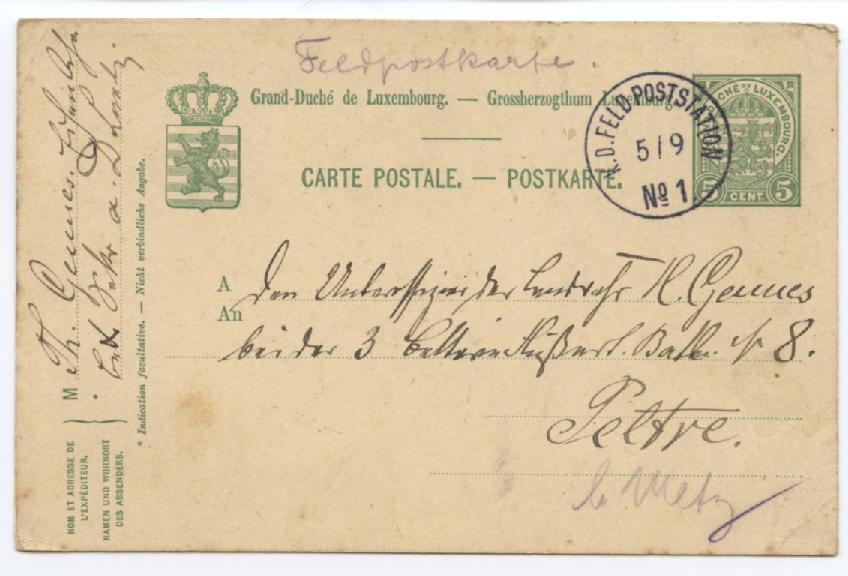 Feldpostkarte.
Grand-Duché de Luxembourg. — Grossherzogthum Luxemburg
CARTE POSTALE. — POSTKARTE.
K. D. FELD-POSTSTATION
5/9
No 1
DUCHÉ DE LUXEMBOURG
5 CENT. 5
A
An
den Unteroffizier der Landwehr H. Gennes
bei der 3
8.
Peltre.
b Metz
NOM ET ADRESSE DE
L'EXPÉDITEUR.
NAMEN UND WOHNORT
DES ABSENDERS.
M
*
Th. Gennes
* Indication facultative. — Nicht verbindliche Angabe.